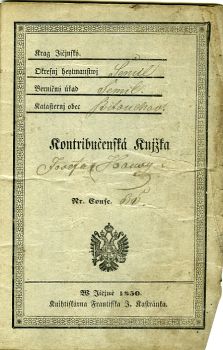 Krag Jičjnský.
Okresnj heytmanstwj Semil
Berničnj úřad Semil.
Katasternj obec Bitouchov
Kontribučenská Knjžka
Josefa
Nr. Conſc.
W Jičjně 1850.
Knihtiskárna Františka J. Kaſtránka.